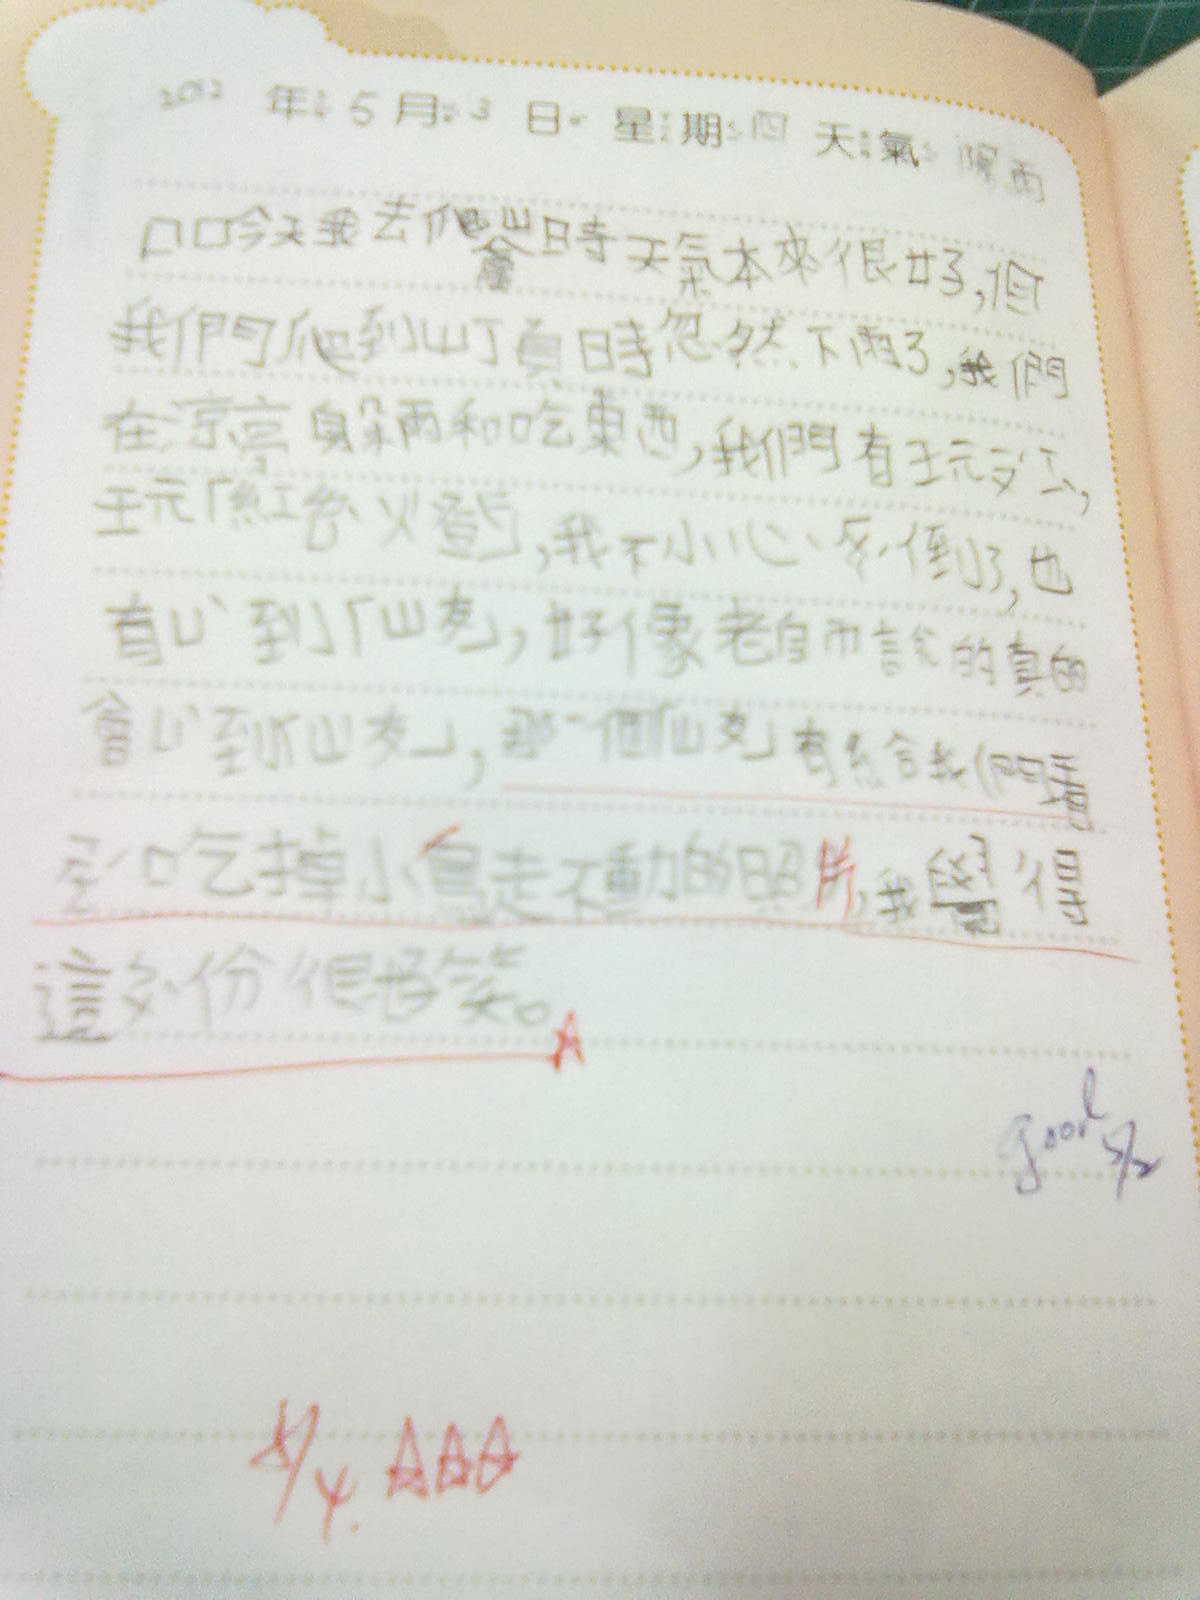 2012 年 5 月 3 日 星期四 天氣 陰雨
口口今天我去爬山時天氣本來很好,但
我們爬到山頂時忽然下雨了,我們
在涼亭躲雨和吃東西,我們有玩
玩「紅色火」,我不小心倒了,也
有 到「山」,好像老師說的真的
會 到「山」,那一個「山」有給我們看
吃掉小鳥走不動的照片,我覺得
這 份很好笑。
good 5/2
5/4. ☆☆☆